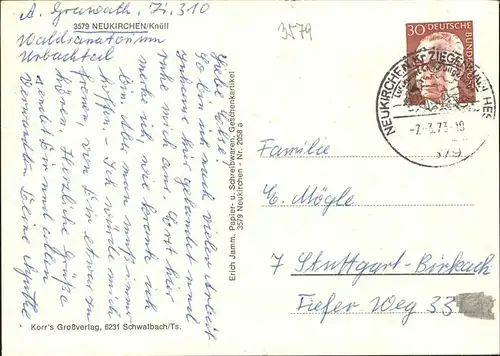 A. Grunwath, Zi. 310
3579 NEUKIRCHEN/Knüll
Waldsanatorium
Urbachtal
Liebe Elße!
So bin ich nach vieler Arbeit
hier gelandet und
ruhe mich aus. Erst hier
merke ich, wie krank ich
bin. Aber man muß immer
hoffen. - Ich würde mich
freuen, von Dir etwas zu
hören. Herzliche Grüße
sendet Dir und allen
Verwandten Deine Agathe
Korr's Großverlag, 6231 Schwalbach/Ts.
Erich Jamm, Papier- u. Schreibwaren, Geschenkartikel
3579 Neukirchen - Nr. 2058 a
3579
30 DEUTSCHE
BUNDESPOST
NEUKIRCHEN KR ZIEGENHAIN HES
-7.-3.73-10
3579
Familie
E. Mögle
7 Stuttgart-Birkach
Tiefer Weg 33